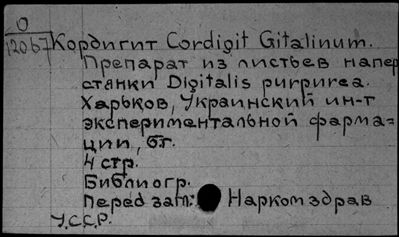 О
12067
Кордигит Cordigit Gitalinum.
Препарат из листьев напер
стянки Digitalis purpurea.
Харьков, Украинский ин-т
экспериментальной фарма=
ции, бг.
4 стр.
Библиогр.
Перед загл: Наркомздрав
У.С.С.Р.